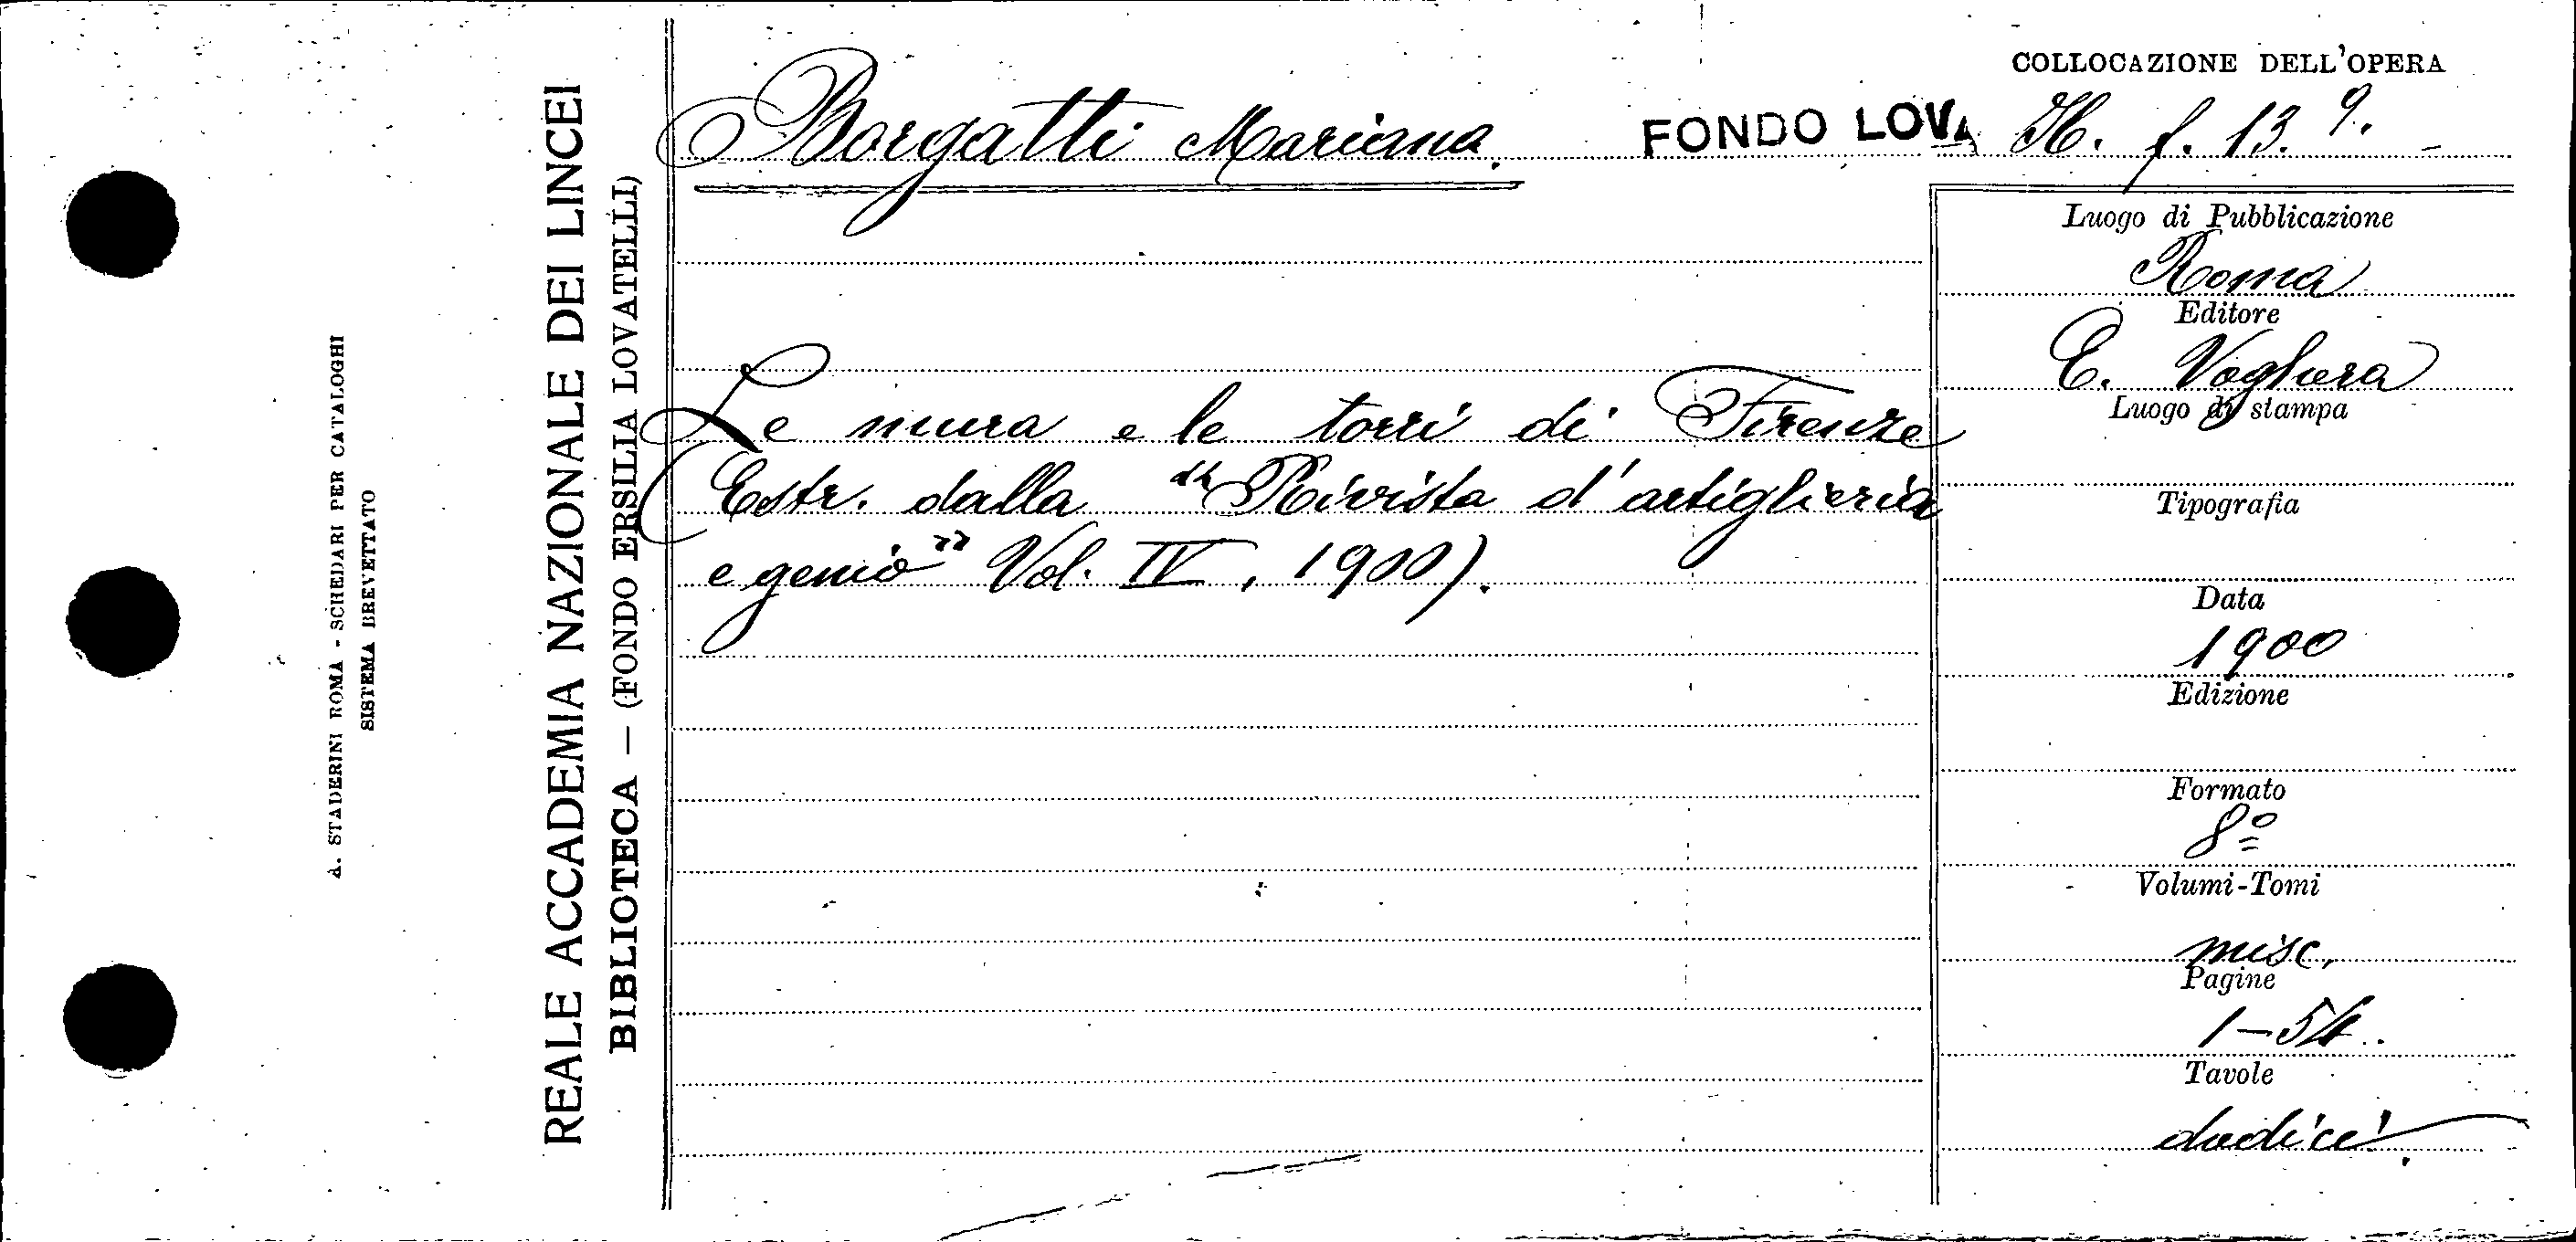 A. STADERINI ROMA - SCHEDARI PER CATALOGHI
SISTEMA BREVETTATO
REALE ACCADEMIA NAZIONALE DEI LINCEI
BIBLIOTECA — (FONDO ERSILIA LOVATELLI)
Borgatti Mariana.
FONDO LOVA
COLLOCAZIONE DELL'OPERA
H. f. 13. 9.
Le mura e le torri di Firenze
(Estr. dalla "Rivista d'artiglieria
e genio" Vol. IV, 1900).
Luogo di Pubblicazione
Roma
Editore
E. Voghera
Luogo di stampa
Tipografia
Data
1900
Edizione
Formato
8º
Volumi-Tomi
misc.
Pagine
1-54.
Tavole
dodici.